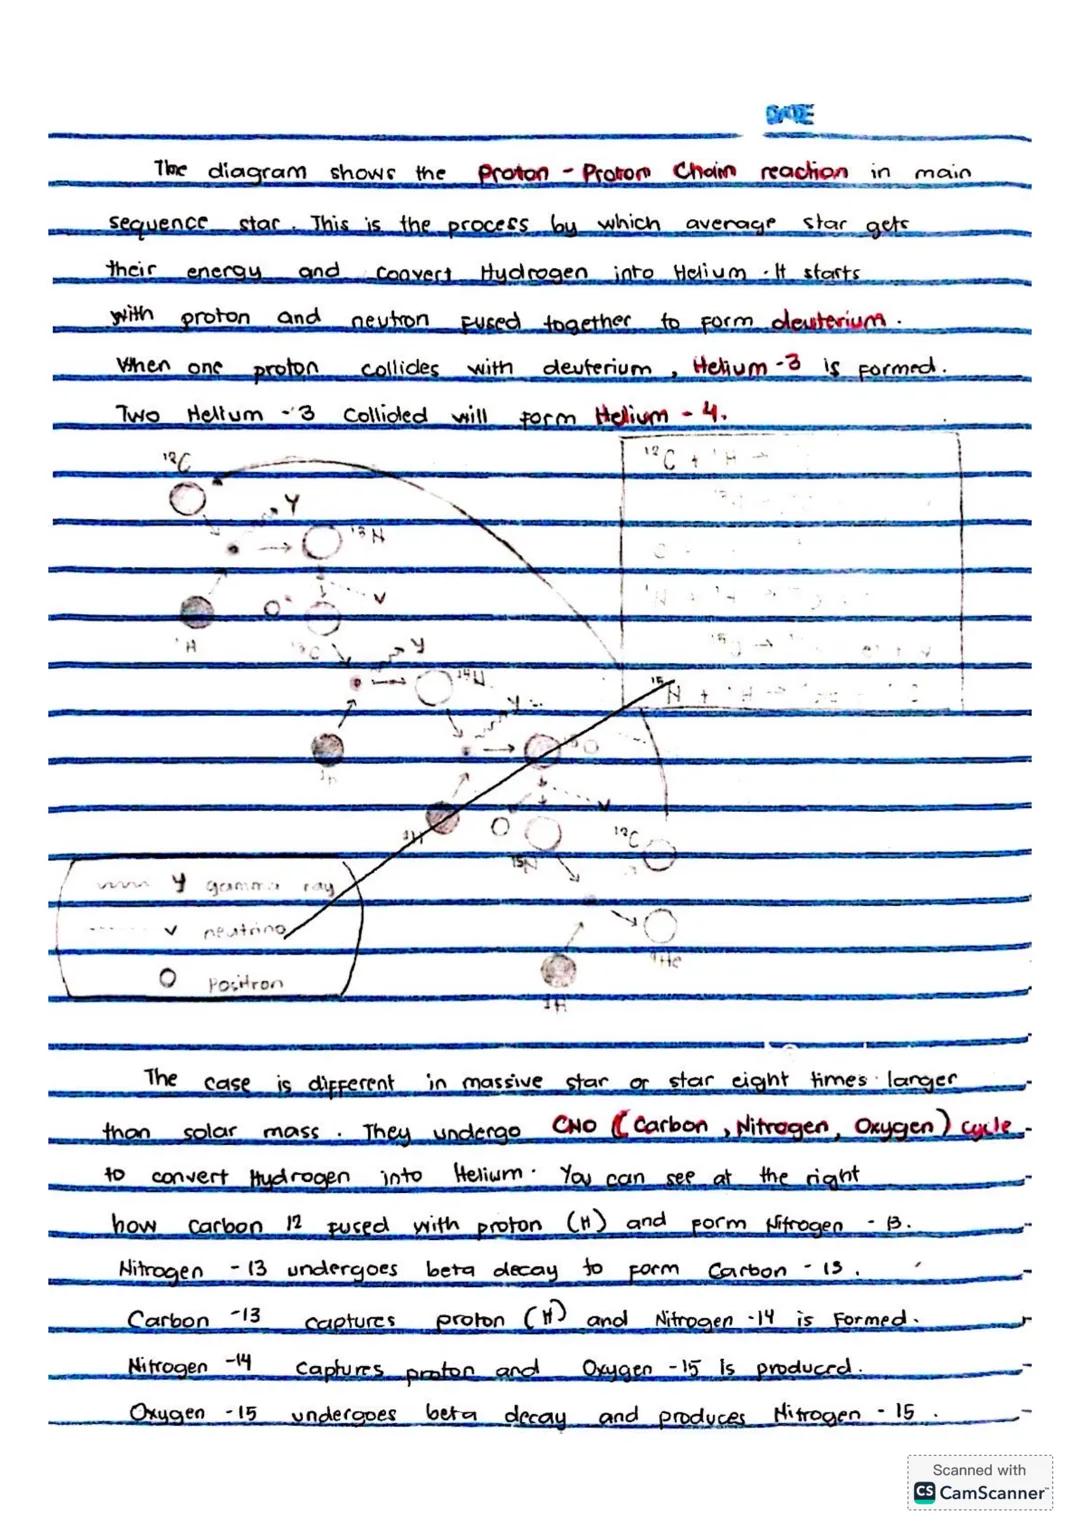 DATE
The diagram shows the Proton - Proton Chain reaction in main
sequence star. This is the process by which average star gets
their energy and convert Hydrogen into Helium. It starts
with proton and neutron fused together to form deuterium.
When one proton collides with deuterium, Helium -3 is formed.
Two Helium -3 collided will form Helium - 4.
¹²C
¹²C + ¹H →
γ
¹³N
v
¹H
¹³C
γ
¹⁴N
¹⁵N + ¹H →
γ
¹H
¹⁵O
v
¹H
¹²C
¹⁵N
γ gamma ray
v neutrino
⁴He
Positron
¹H
The case is different in massive star or star eight times larger
than solar mass. They undergo CNO (Carbon, Nitrogen, Oxygen) cycle
to convert Hydrogen into Helium. You can see at the right
how carbon 12 fused with proton (H) and form Nitrogen - 13.
Nitrogen - 13 undergoes beta decay to form Carbon - 13.
Carbon -13 captures proton (H) and Nitrogen -14 is Formed.
Nitrogen -14 captures proton and Oxygen -15 is produced.
Oxygen -15 undergoes beta decay and produces Nitrogen - 15.
Scanned with
CS CamScanner